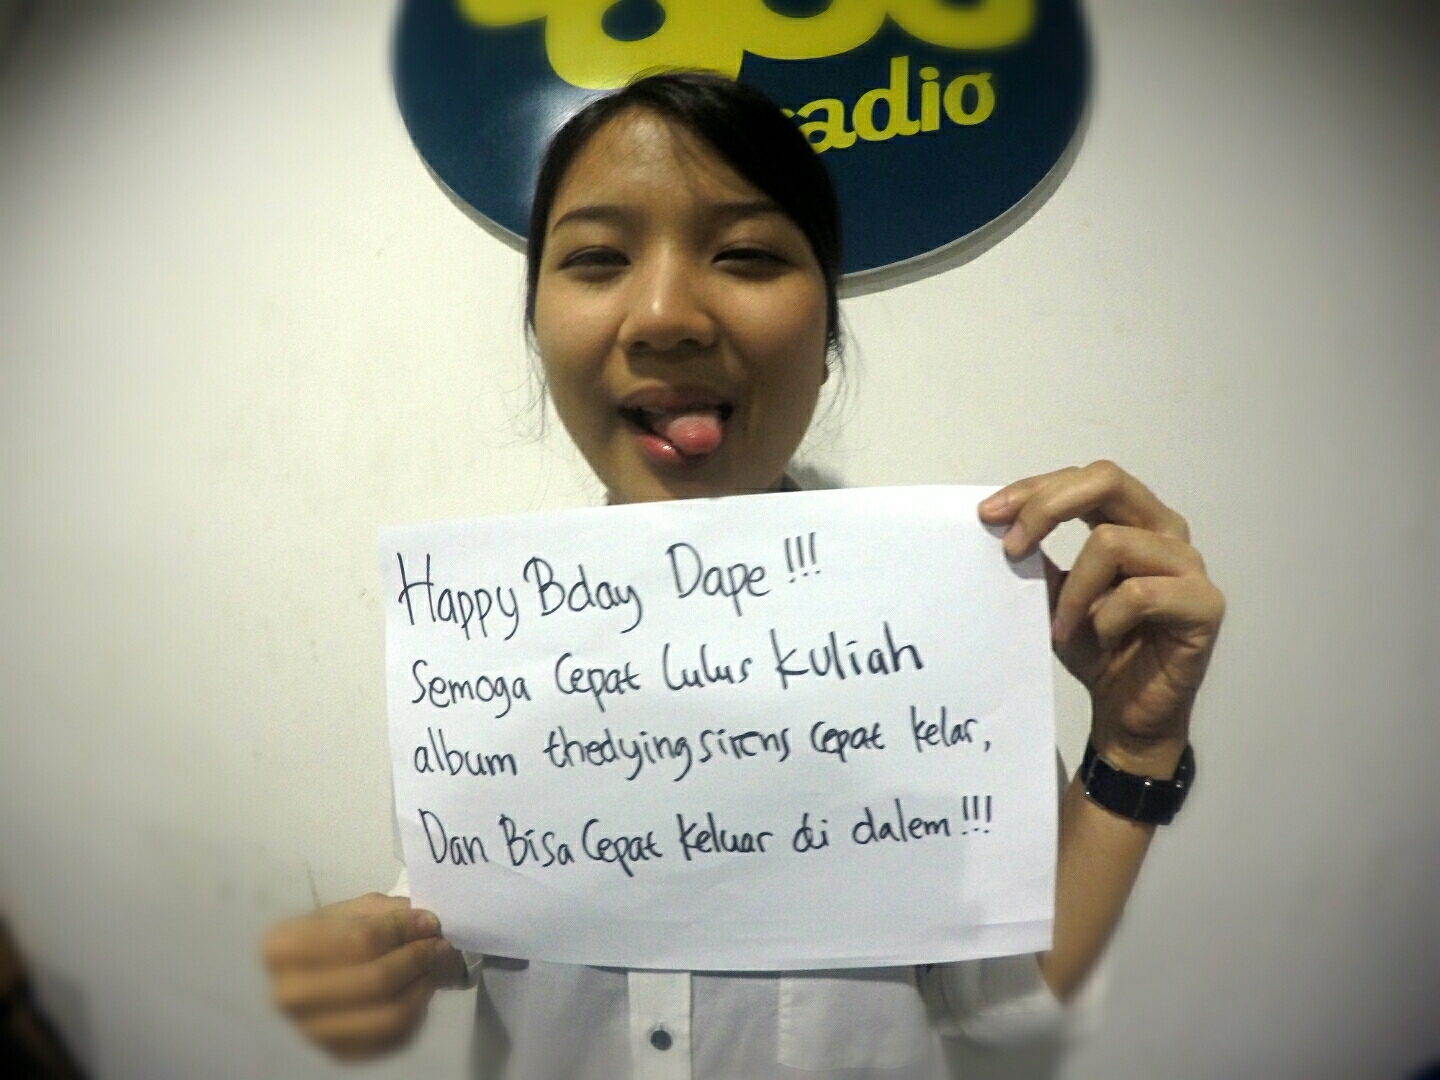 radio
Happy Bday Dape !!!
Semoga Cepat lulus kuliah
album thedyingsirens cepat kelar,
Dan Bisa Cepat keluar di dalem !!!